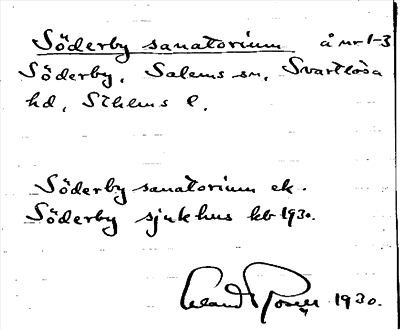 Söderby sanatorium å nr 1-3
Söderby, Salems sn, Svartlösa
hd, Sthlms l.
Söderby sanatorium ek.
Söderby sjukhus kb 1930.
1930.